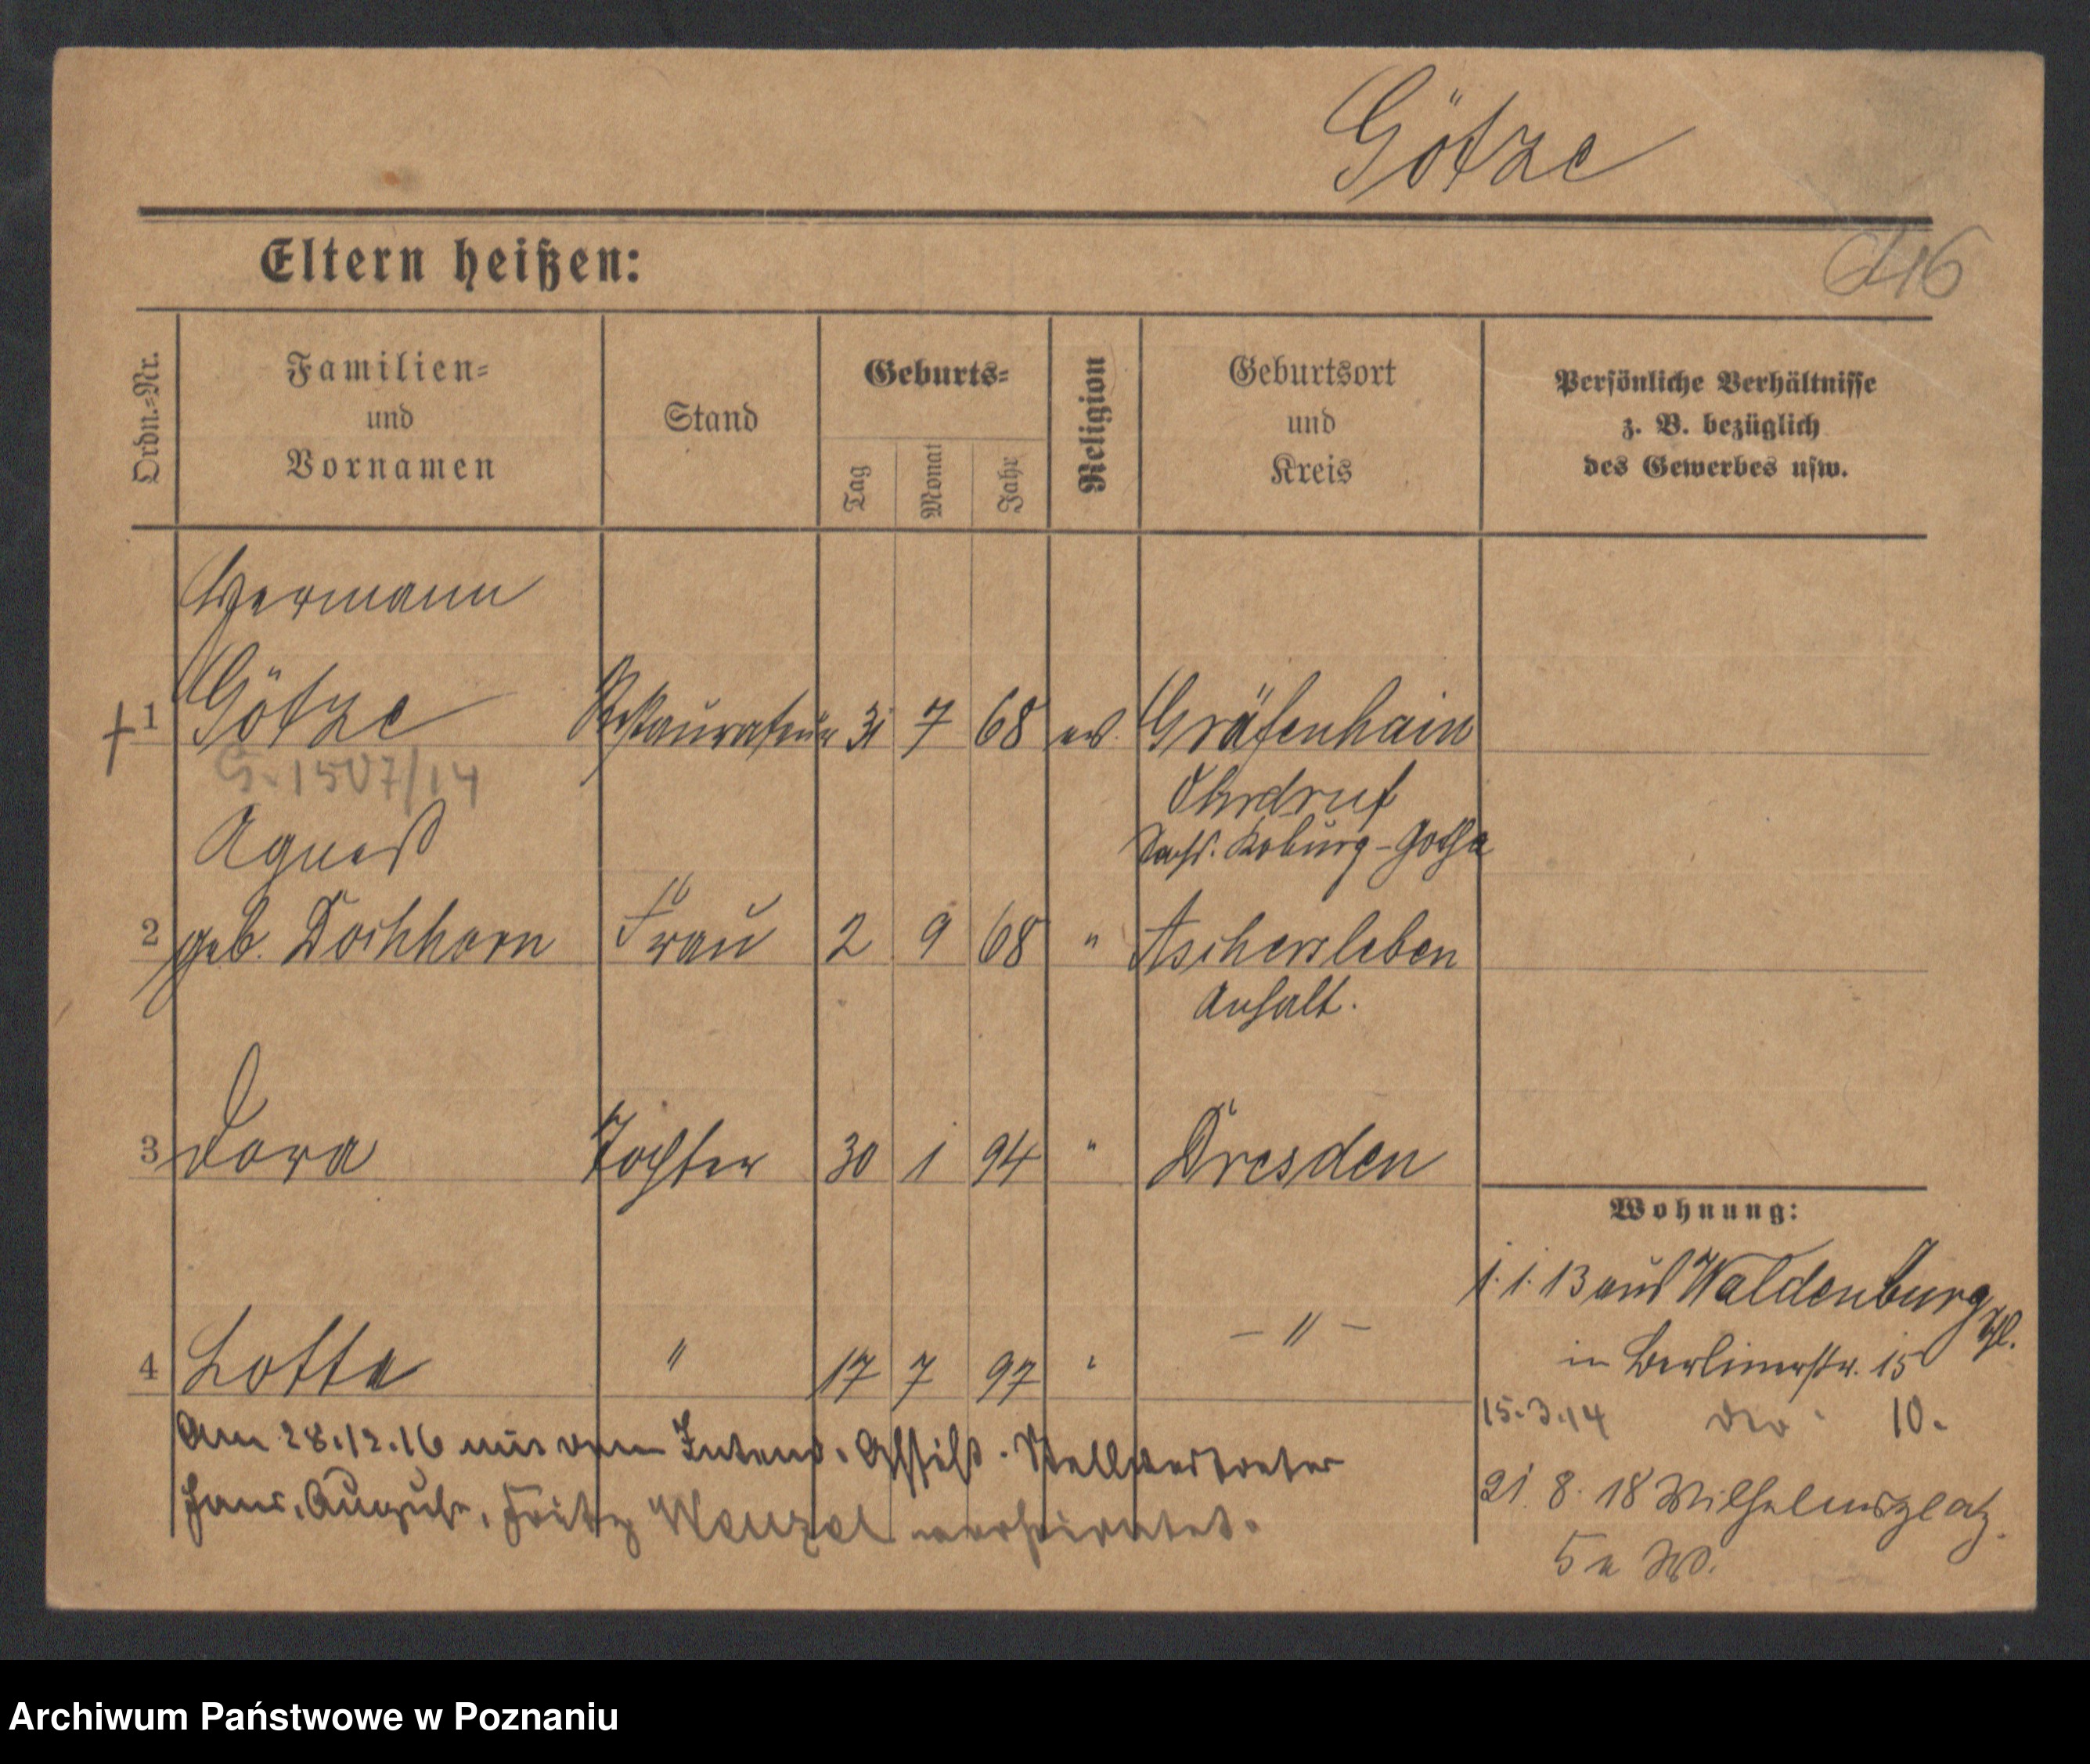 Götze
Eltern heißen:
Ordn.=Nr.
Familien=
und
Vornamen
Stand
Geburts=
Tag
Monat
Jahr
Religion
Geburtsort
und
Kreis
Persönliche Verhältnisse
z. B. bezüglich
des Gewerbes usw.
Hermann
† 1 Götze Restaurateur 31 7 68 ev. Gräfenhain
G. 1507/14
Ohrdruf
Sachs. Koburg-Gotha
Agnes
2 geb. Dochhorn Frau 2 9 68 " Aschersleben
Anhalt.
3 Dora Tochter 30 1 94 " Dresden
4 Lotte " 17 7 97 " - " -
Am 28.12.16 mit dem Intend. Assist. Stellvertreter
Hans, August, Fritz Wenzel verheiratet.
Wohnung:
1. 1. 13 aus Waldenburg
Schl.
in Berlinerstr. 15
15.3.14 10.
21. 8. 18 Wilhelmsplatz
5
Archiwum Państwowe w Poznaniu